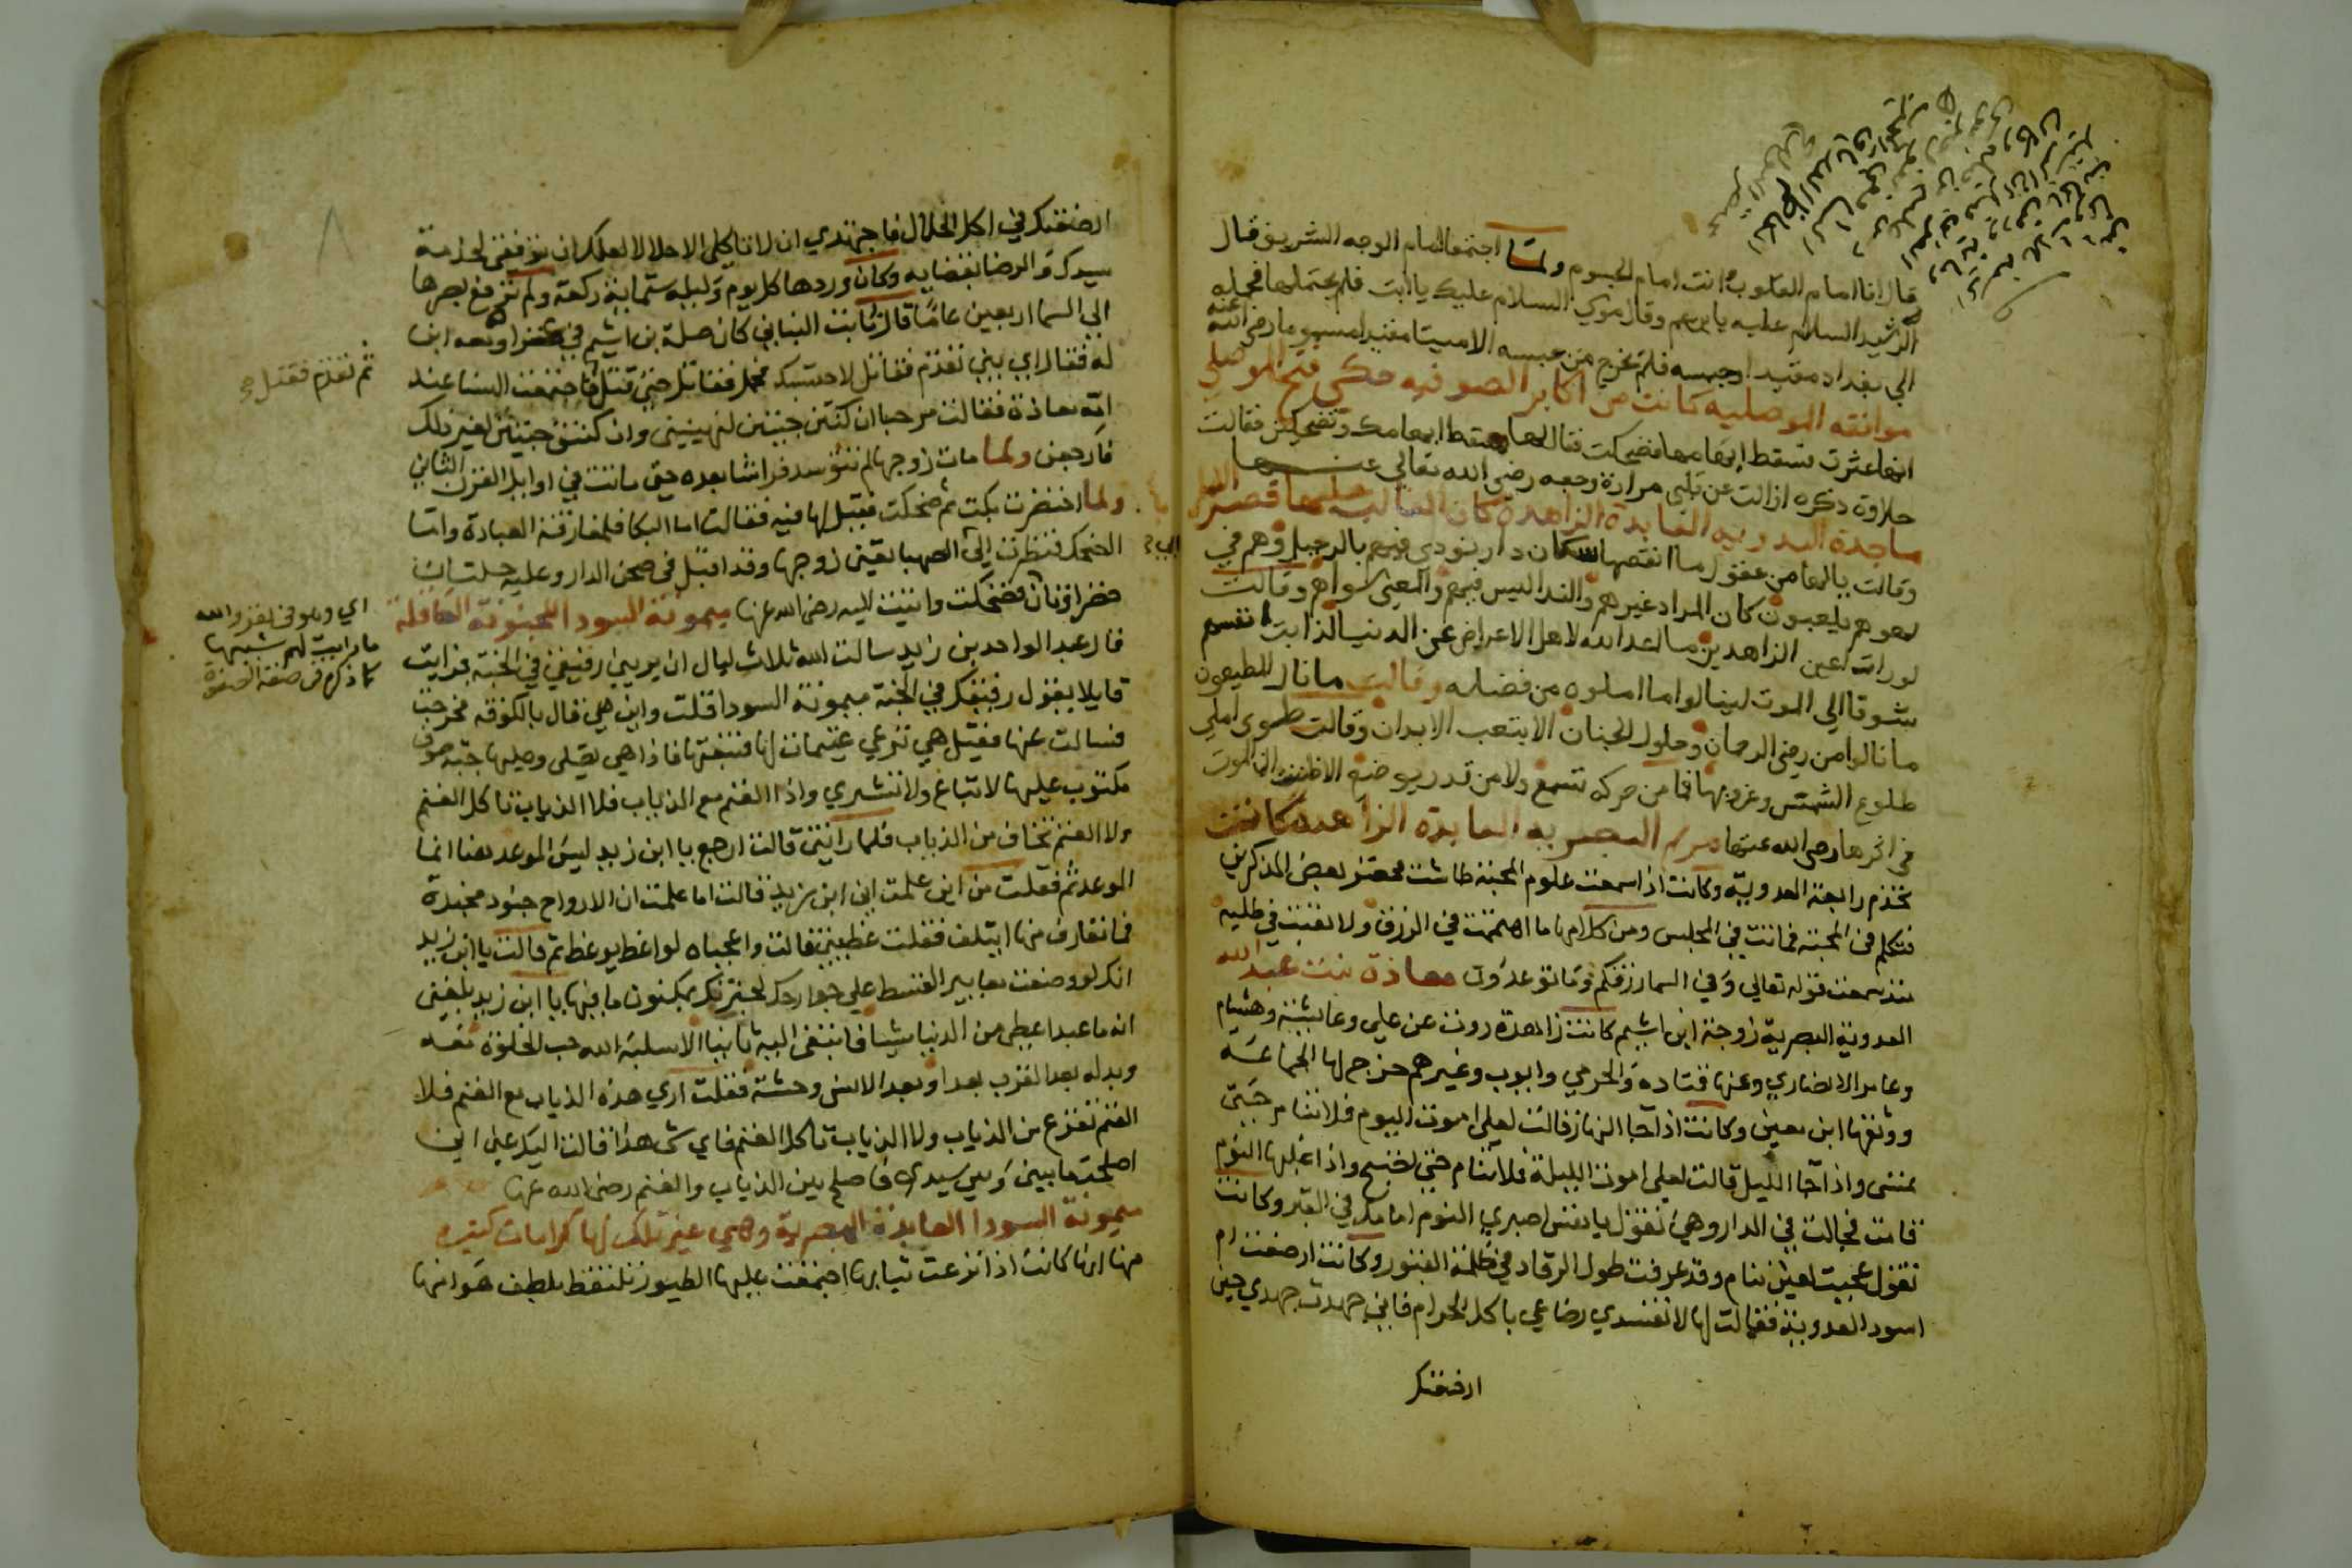 قال انا امام القلوب انت امام الجسوم ولما اجتمعا امام الوجه الشريف قال
الرشيد السلام عليك يا ابن عم وقال موسى السلام عليك يا ابت فلم يحتملها فحمله
الي بغداد مقيدا وحبسه فلم يخرج من حبسه الا ميتا مقيدا مسموما رضي الله عنه
موافقه الموصليه كانت من اكابر الصوفيه حكى فتح الموصلي
انها عثرت فسقط ابهامها فضحكت فقال لها سقط ابهامك وتضحكين فقالت
حلاوة ذكره ازالت عن قلبي مرارة وجعه رضي الله تعالى عنها
ماجدة العدويه العابدة الزاهدة كان الغالب عليها قصر الامل
وقالت يا لها من عقول ما انقصها سكان دار نودي فيهم بالرحيل وهم في
لهوهم يلعبون كان المراد غيرهم والنداء ليس فيهم والمعنى سواهم وقالت
لو رات اعين الزاهدين ما اعد الله لاهل الاعراض عن الدنيا لذابت انفسهم
شوقا الي الموت لينالوا ما املوه من فضله وقالت ما نال المطيعون
ما نالوا من رضى الرحمان وحلول الجنان الا بتعب الابدان وقالت طوى املي
طلوع الشمس وغروبها فما من حركه تسمع ولا من قدم يوضع الا ظننت ان الموت
في اثرها رضي الله عنها مريم البصريه العابدة الزاهده كانت
تخدم رابعة العدويه وكانت اذا سمعت علوم المحبة طاشت فحضرت بعض المذكرين
فتكلم في المحبة فماتت في المجلس ومن كلامها ما اهتممت في الرزق ولا تعبت في طلبه
منذ سمعت قوله تعالى وفي السما رزقكم وما توعدون معاذة بنت عبد الله
العدوية البصرية زوجة ابن اشيم كانت زاهدة روت عن علي وعايشة وهشام
وعامر الانصاري وعنها قتاده والحرمي وايوب وغيرهم خرج لها الجماعه
ووثقها ابن معين وكانت اذا جا النهار قالت لعلي اموت اليوم فلا تنام حتى
تمسي واذا جا الليل قالت لعلي اموت الليلة فلا تنام حتى تصبح واذا غلبها النوم
قامت فجالت في الدار وهي تقول يا نفس اصبري النوم امامك في القبر وكانت
تقول عجبت لعين تنام وقد عرفت طول الرقاد في ظلمة القبور وكانت ارضعت ام
اسود العدوية فقالت لها لا تفسدي رضاعي باكل الحرام فاني جهدت جهدي حين
ارضعتك
ارضعتك في اكل الحلال فاجتهدي ان لا تاكلي الا حلالا لعلك ان توفقي لخدمة
سيدك والرضا بقضايه وكان وردها كل يوم وليله ستماية ركعة ولم ترفع بصرها
الي السما اربعين عاما قال ثابت البناني كان صلة بن اشيم في ومعه ابن
له فقال اي بني تقدم فقاتل لاحتسبك فحمل فقاتل حتى قتل فاجتمعت النسا عند
ثم تقدم فقتل صح
امه معاذة فقالت مرحبا ان كنتن جيتن لتهنيني وان كنتن جيتن لغير ذلك
فارجعن ولما مات زوجها لم تتوسد فراشا بعده حتى ماتت في اوايل القرن الثاني
ولما احتضرت بكت ثم ضحكت فقيل لها فيه فقالت اما البكا فلمفارقة العبادة واما
الضحك فنظرت الى الصهبا يعني زوجها وقد اقبل في صحن الدار وعليه حلتان
خضراوتان فضحكت واتيت اليه رضي الله عنها ميمونة السودا المجنونة العاقلة
اي وهو في نفر والله
ما رايت لهم شبيها
كما ذكره في صفة الصفوة
قال عبد الواحد بن زيد سالت الله ثلاث ليال ان يريني رفيقي في الجنة فرايت
قايلا يقول رفيقك في الجنة ميمونة السودا قلت واين هي قال بالكوفه فخرجت
فسالت عنها فقيل هي ترعي غنيمات لها فتبعتها فاذا هي تصلى وعليها جبة صوف
مكتوب عليها لا تباع ولا تشتري واذا الغنم مع الذياب فلا الذياب تاكل الغنم
ولا الغنم تخاف من الذياب فلما راتني قالت ارجع يا ابن زيد ليس الموعد هنا انما
الموعد ثم فقلت من اين علمت اني ابن زيد قالت اما علمت ان الارواح جنود مجندة
فما تعارف منها ايتلف فقلت عظيني قالت واعجباه لواعظ يوعظ ثم قالت يا ابن زيد
انك لو وضعت معايير القسط علي جوارحك لخبرتك بمكنون ما فيها يا ابن زيد بلغني
انه ما عبد اعطي من الدنيا شيا فابتغى اليه ثانيا الا سلبه الله حب الخلوة معه
وبدله بعد القرب بعدا وبعد الانس وحشة فقلت اري هذه الذياب مع الغنم فلا
الغنم تفزع من الذياب ولا الذياب تاكل الغنم فاي شى هذا قالت اليك عني اني
اصلحت ما بيني وبين سيدي فاصلح بين الذياب والغنم رضي الله عنها
ميمونة السودا العابدة البصرية وهي غير تلك لها كرامات كثيره
منها انها كانت اذا نزعت ثيابها اجتمعت عليها الطيور تلتقط بلطف هوامها